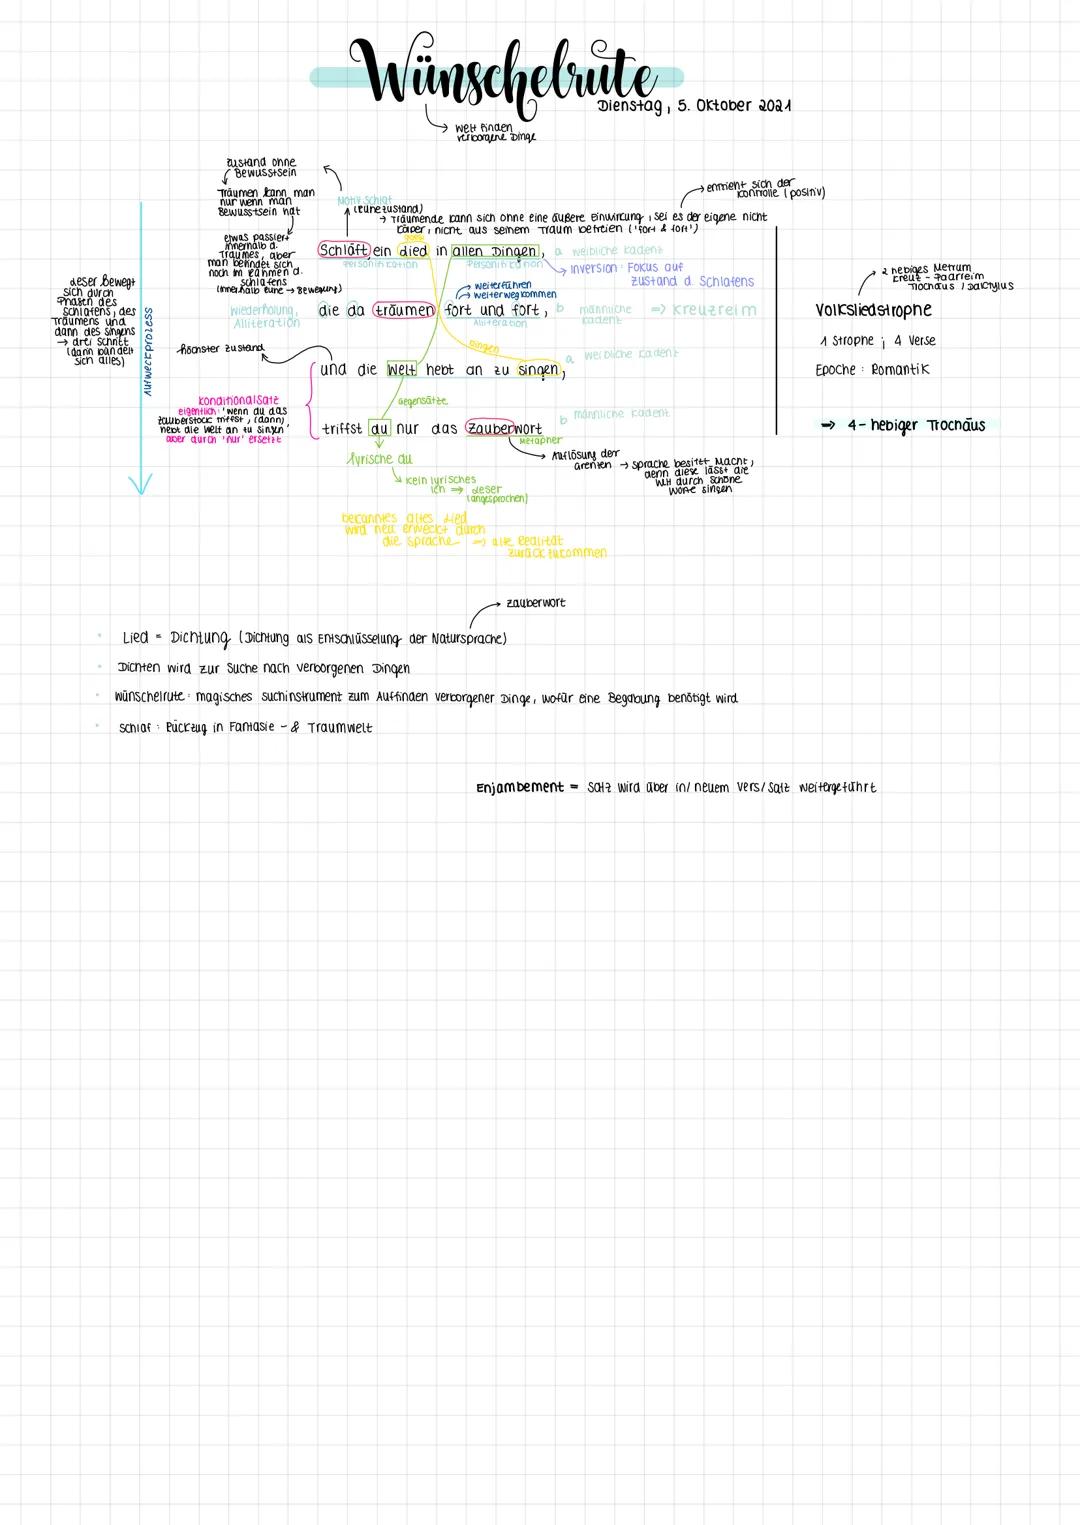 Wünschelrute
Dienstag, 5. Oktober 2021
Welt finden
verborgene Dinge
Zustand ohne
Bewusstsein
Träumen kann man
nur wenn man
Bewusstsein hat
etwas passiert
innerhalb d.
Traumes, aber
man befindet sich
noch im Rahmen d.
Schlafens
(innerhalb Ruhe → Bewegung)
Motiv Schlaf
(Ruhezustand)
→ Träumende kann sich ohne eine äußere Einwirkung, sei es der eigene nicht
Körper, nicht aus seinem Traum befreien ('fort & fort')
→ entzieht sich der
Kontrolle (positiv)
Schläft ein Lied in allen Dingen, a weibliche Kadenz
Personifikation Personifikation
→ Inversion: Fokus auf
Zustand d. Schlafens
→ weiterführen
→ weiterwegkommen
Wiederholung,
Alliteration
die da träumen fort und fort, b männliche
Kadenz
⇒ Kreuzreim
Alliteration
Dingen
höchster Zustand
und die Welt hebt an zu singen, a weibliche Kadenz
Gegensätze
Konditionalsatz
eigentlich: 'wenn du das
Zauberstock triffst, (dann)
hebt die Welt an zu singen'
aber durch 'nur' ersetzt
triffst du nur das Zauberwort b männliche Kadenz
Metapher
→ Auflösung der
→ Sprache besitzt Macht,
denn diese lässt die
Welt durch schöne
Worte singen
lyrische du
kein lyrisches
Ich ⇒ Leser
(angesprochen)
bekanntes altes Lied
wird neu erweckt durch
die Sprache ⇒ alte Realität
zurückzukommen
Leser bewegt
sich durch
Phasen des
Schlafens, des
Träumens und
dann des Singens
→ drei Schritt
(dann bündelt
sich alles)
Aufweckprozess
Kreuz - Paarreim
Trochäus / Daktylus
Volksliedstrophe
1 Strophe ; 4 Verse
Epoche: Romantik
⇒ 4-hebiger Trochäus
→ Zauberwort
• Lied = Dichtung (Dichtung als Entschlüsselung der Natursprache)
• Dichten wird zur Suche nach verborgenen Dingen
• Wünschelrute: magisches Suchinstrument zum Auffinden verborgener Dinge, wofür eine Begabung benötigt wird
• Schlaf: Rückzug in Fantasie- & Traumwelt
Enjambement = Satz wird über in/neuem Vers/Satz weitergeführt